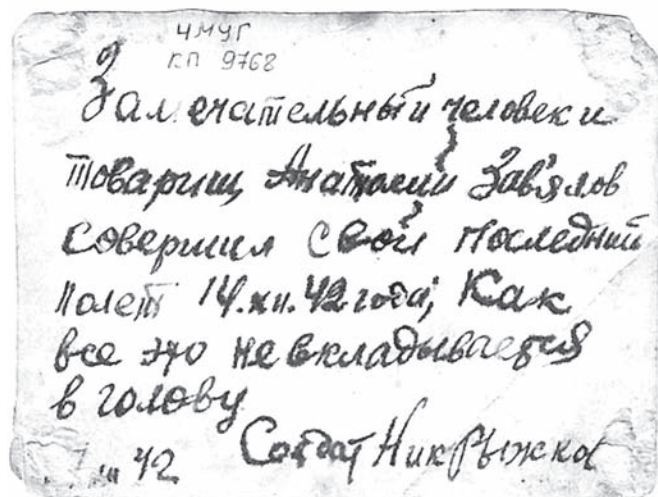 ЧМЧГ
КП 9768
Замечательный человек и
товарищ Анатолий Завялов
совершил свой последний
полет 14.XII.42 года; Как
все это не вкладывается
в голову
Солдат Ник Рыжко
42